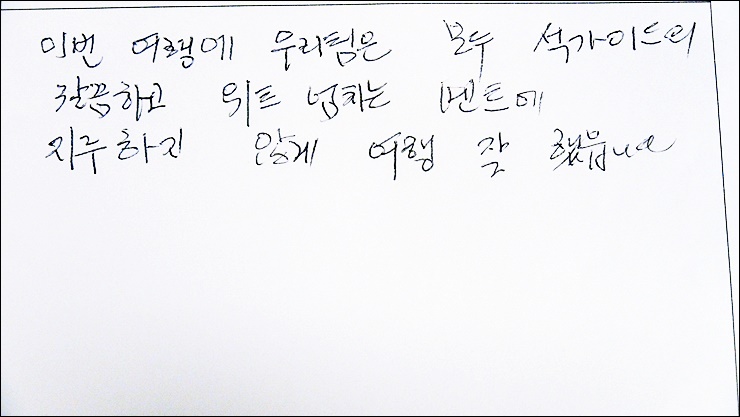 이번 여행에 우리팀은 모두 석가이드의
깔끔하고 위트 넘치는 멘트에
지루하진 않게 여행 잘 했읍니다